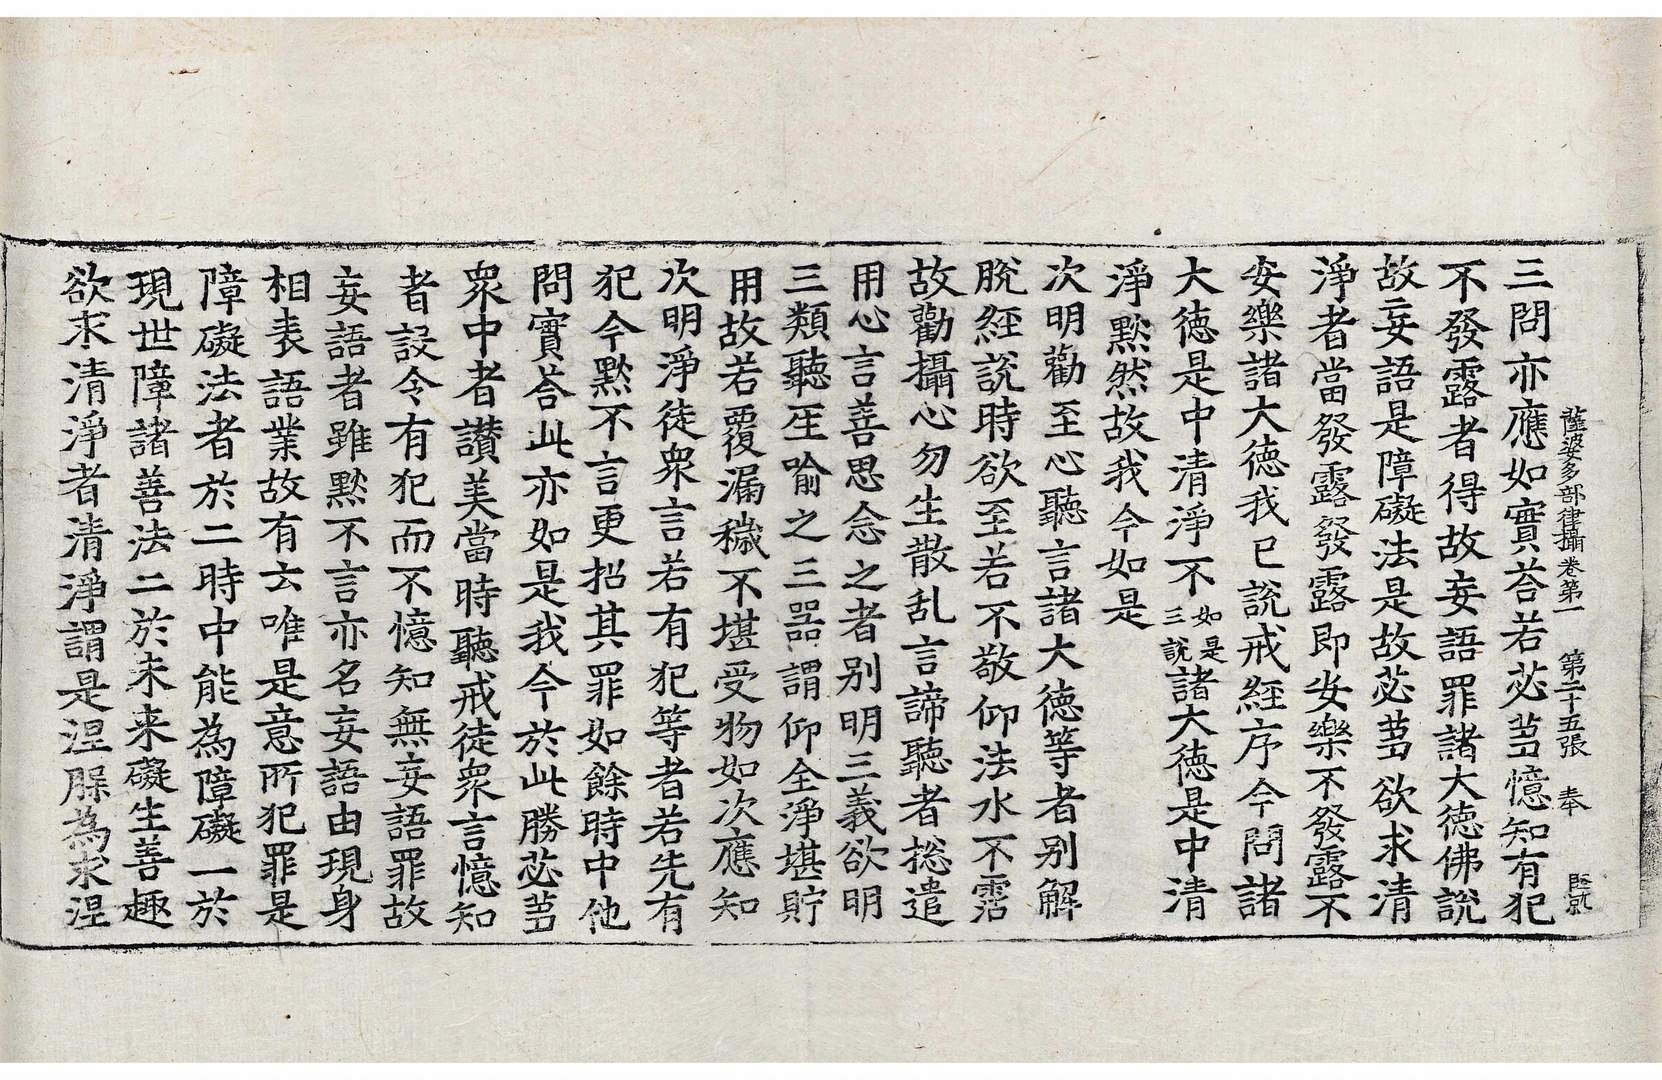 薩婆多部律攝卷第一　第二十五張　奉
三問亦應如實荅若苾芻憶知有犯
不發露者得故妄語罪諸大德佛說
故妄語是障礙法是故苾芻欲求清
淨者當發露發露即安樂不發露不
安樂諸大德我已說戒經序今問諸
大德是中清淨不如是三說諸大德是中清
淨默然故我今如是
次明勸至心聽言諸大德等者別解
脫經說時欲至若不敬仰法水不霑
故勸攝心勿生散乱言諦聽者捴遣
用心言善思念之者別明三義欲明
三類聽生喻之三器謂仰全淨堪貯
用故若覆漏穢不堪受物如次應知
次明淨徒衆言若有犯等者若先有
犯今默不言更招其罪如餘時中他
問實荅此亦如是我今於此勝苾芻
衆中者讃美當時聽戒徒衆言憶知
者設令有犯而不憶知無妄語罪故
妄語者雖默不言亦名妄語由現身
相表語業故有云唯是意所犯罪是
障礙法者於二時中能為障礙一於
現世障諸善法二於未来礙生善趣
欲求清淨者清淨謂是涅槃為求涅